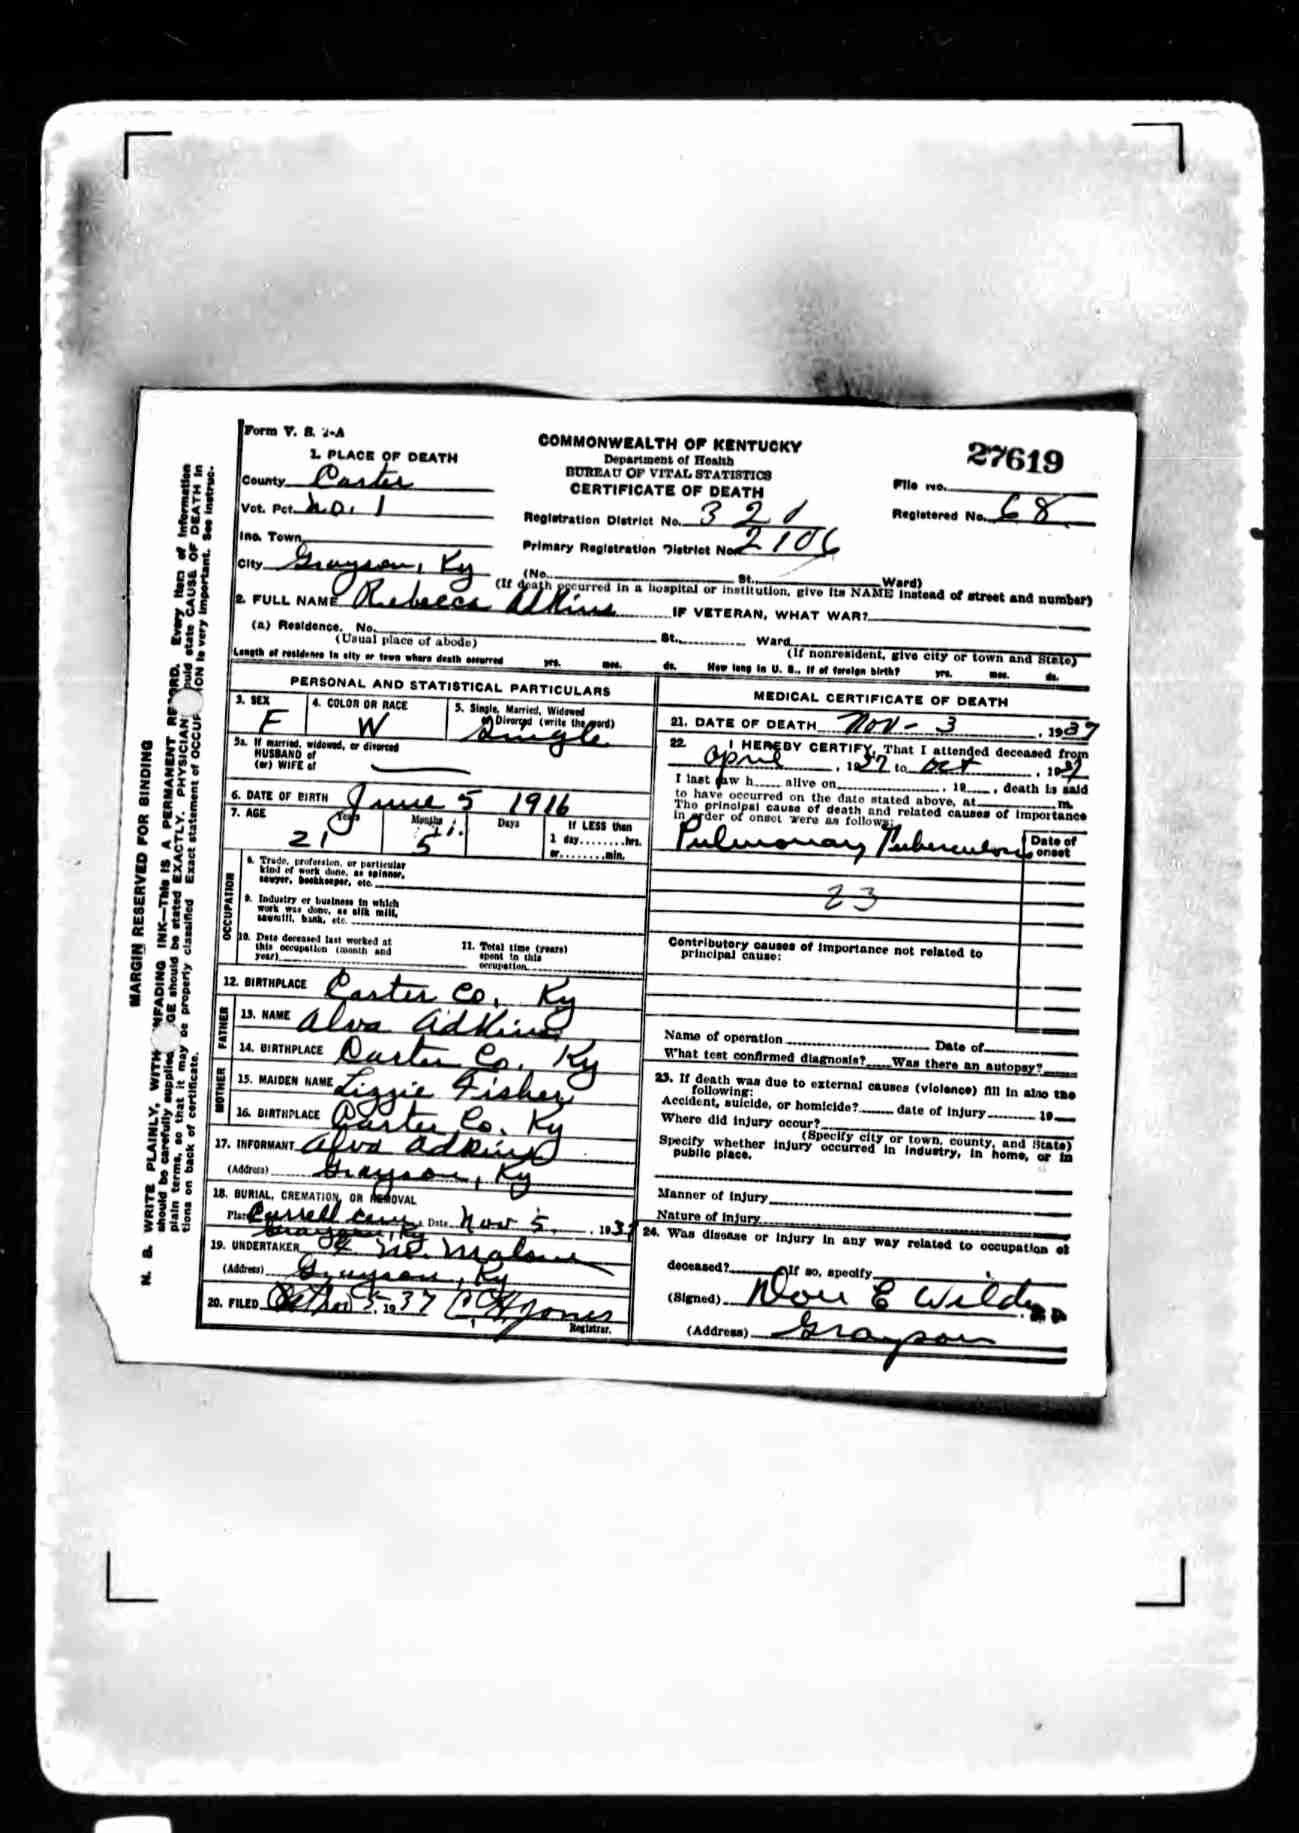 Form V. S. 1-A
COMMONWEALTH OF KENTUCKY
Department of Health
BUREAU OF VITAL STATISTICS
CERTIFICATE OF DEATH
27619
File No.
Registered No. 68
1. PLACE OF DEATH
County Carter
Vot. Pct. No. 1
Inc. Town
City Grayson, Ky
Registration District No. 320
Primary Registration District No. 2106
(No. St. Ward)
(If death occurred in a hospital or institution, give its NAME instead of street and number)
2. FULL NAME Rebecca Adkins IF VETERAN, WHAT WAR?
(a) Residence. No. St. Ward
(Usual place of abode) (If nonresident, give city or town and State)
Length of residence in city or town where death occurred yrs. mos. ds. How long in U. S., if of foreign birth? yrs. mos. ds.
PERSONAL AND STATISTICAL PARTICULARS
3. SEX 4. COLOR OR RACE 5. Single, Married, Widowed
or Divorced (write the word)
F W Single
5a. If married, widowed, or divorced
HUSBAND of
(or) WIFE of
6. DATE OF BIRTH June 5 1916
7. AGE Years Months Days If LESS than
1 day........hrs.
or........min.
21 5
OCCUPATION
8. Trade, profession, or particular
kind of work done, as spinner,
sawyer, bookkeeper, etc.
9. Industry or business in which
work was done, as silk mill,
sawmill, bank, etc.
10. Date deceased last worked at
this occupation (month and
year)
11. Total time (years)
spent in this
occupation
12. BIRTHPLACE Carter Co, Ky
FATHER
13. NAME Alva Adkins
14. BIRTHPLACE Carter Co. Ky
MOTHER
15. MAIDEN NAME Lizzie Fisher
16. BIRTHPLACE Carter Co. Ky
17. INFORMANT Alva Adkins
(Address) Grayson, Ky
18. BURIAL, CREMATION, OR REMOVAL
Place Cem Date Nov 5, 1937
Grayson, Ky
19. UNDERTAKER Malone
(Address) Grayson, Ky
20. FILED Nov 5, 1937 Jones
Registrar.
MEDICAL CERTIFICATE OF DEATH
21. DATE OF DEATH Nov - 3, 1937
22. I HEREBY CERTIFY, That I attended deceased from
April, 1937 to Oct, 1937
I last saw h...... alive on, 19......, death is said
to have occurred on the date stated above, at m.
The principal cause of death and related causes of importance
in order of onset were as follows:
Date of
onset
Pulmonary Tuberculosis
23
Contributory causes of importance not related to
principal cause:
Name of operation Date of
What test confirmed diagnosis? Was there an autopsy?
23. If death was due to external causes (violence) fill in also the
following:
Accident, suicide, or homicide? date of injury 19
Where did injury occur?
(Specify city or town, county, and State)
Specify whether injury occurred in industry, in home, or in
public place.
Manner of injury
Nature of injury
24. Was disease or injury in any way related to occupation of
deceased? If so, specify
(Signed) Don E Wilder
(Address) Grayson
MARGIN RESERVED FOR BINDING
N. B. WRITE PLAINLY, WITH UNFADING INK—This IS A PERMANENT RECORD. Every item of information
should be carefully supplied. AGE should be stated EXACTLY. PHYSICIANS should state CAUSE OF DEATH in
plain terms, so that it may be properly classified. Exact statement of OCCUPATION is very important. See instruc-
tions on back of certificate.